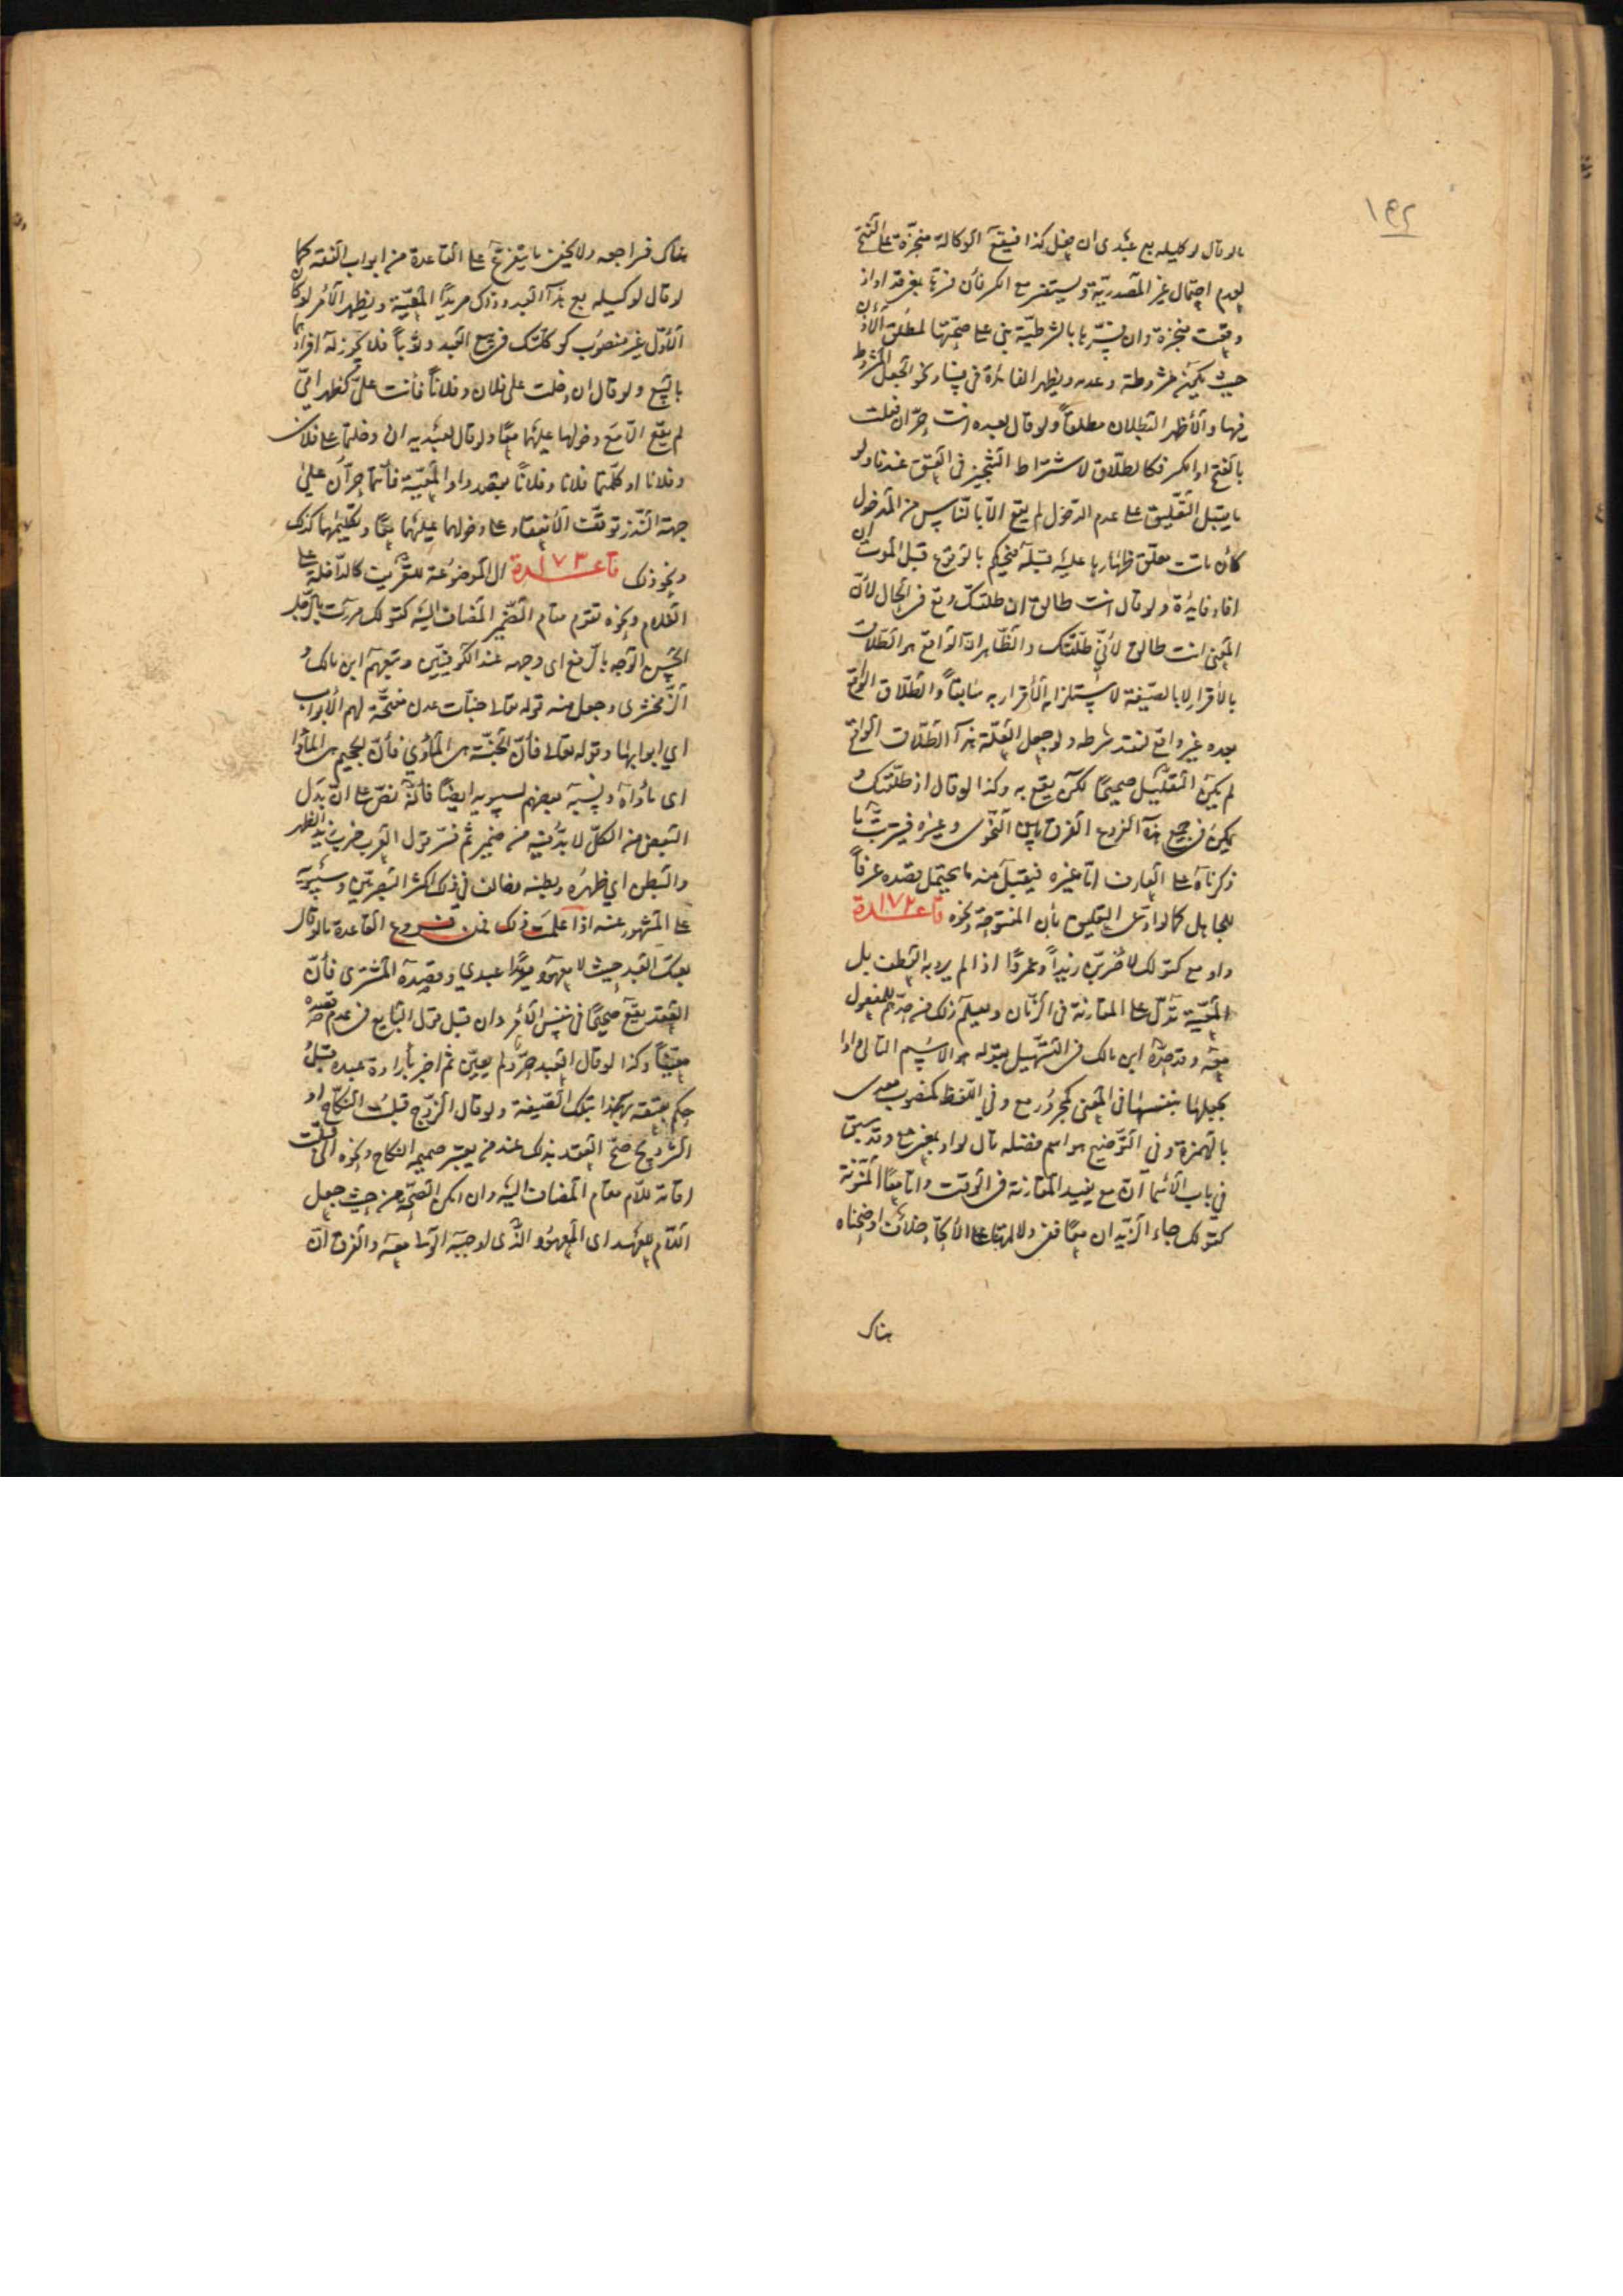 ١٩٢
ما لو قال لوكيله بع عبدى ان دخل كذا فيقع الوكالة منجزة على الفتح
لعدم احتمال غير المصدرية ويستفسر مع الكسر فأن فسرها بمعنى قد او اذ
وقعت منجزة وان فسرها بالشرطية بنى على صحتها لمطلق الأذن
حيث يكون مشروطة وعدمه ويظهر الفائدة فى فساد نحو الجعل المشروط
فيها والأظهر البطلان مطلقاً ولو قال لعبده انت حرّ ان فعلت
بالفتح او الكسر فكالطلاق لاشتراط التنجيز فى العتق عندنا ولو
ما يقبل التعليق على عدم الدخول لم يقع الّا بالناس من المدخول
كأن مات معلق ظهارها عليه قبله فيحكم بالوقوع قبل الموت ان
افاد فايدة ولو قال انت طالق ان طلقتك وقع فى الحال لأنّ
المعنى انت طالق لأنّي طلقتك والظاهر انّ الواقع هو الطلاق
بالأقرار لا بالصيغة لاستلزامه الأقرار به سابقاً والطلاق الواقع
بعده غير واقع لفقد شرطه ولو جعل العلة هذا الطلاق الواقع
لم يكن التعليل صحيحاً لكن يقع به وكذا لو قال اذ طلقتك و
يمكن فى جميع هذه الفروع الفرق بين النحوى وغيره فيرتب ما
ذكرناه على العارف امّا غيره فيقبل منه ما يحتمل قصده عرفاً
للجاهل كما لو ادعى التعليق بأن المفتوحة ونحوه قاعدة ١٧٢
واو مع كقولك لأضربن زيداً وعمرواً اذا لم يرد به العطف بل
المعية تدل على المقارنة فى الزمان ويعلم ذلك من حدهم للمفعول
معه وقد حدّه ابن مالك فى التسهيل بقوله هو الاسم التالى واوا
يجعلها بنفسها فى المعنى كمجرور مع وفي اللفظ كمنصوب معدى
بالهمزة وفى التوضيح هو اسم فضلة تال لواو بمعنى مع وقد سبق
في باب الأسما انّ مع يفيد المقارنة فى الوقت وامّا معاً المنونة
كقولك جاء الزيدان معاً ففى دلالتها على الأتحاد خلاف اوضحناه
هناك
هناك فراجعه ولا يخفى ما يتفرع على القاعدة من ابواب الفقه كما
لو قال لوكيله بع هذا العبد وذاك مريداً المعية ويظهر الأمر لو كان
الأول غير منصوب كوكلتك فى بيع العبد وثوباً فلا يجوز له افرادهما
بالبيع ولو قال ان دخلت على فلان وفلاناً فأنت عليّ كظهر امّي
لم يقع الّا مع دخولها عليهما معاً ولو قال لعبديه ان دخلتما على فلان
وفلانا او كلمتما فلانا وفلاناً بقصد واو المعية فأنتما حرّان على
جهة النذر توقف الأنعقاد على دخولهما عليهما معاً وتكليمهما كذلك
ونحو ذلك قاعدة ١٧٣ ال الموضوعة للتعريف كالداخلة على
الغلام ونحوه تقوم مقام الضمير المضاف اليه كقولك مررت بالرجل
الحسن الوجه بالرفع اى وجهه عند الكوفيين وتبعهم ابن مالك و
الزمخشرى وجعل منه قوله تعالى جنات عدن مفتحة لهم الأبواب
اي ابوابها وقوله تعالى فأنّ الجنة هى المأوي فأنّ الجحيم هى المأوا
اى مأواه ونسبه بعضهم لسيبويه ايضاً فأنّه نصّ على انّ بدل
البعض من الكلّ لا بدّ فيه من ضمير ثم فسّر قول العرب ضرب زيد الظهر
والبطن اي ظهره وبطنه مخالف فى ذلك اكثر البصريين وسيبويه
على المشهور عنه اذا علمت ذلك فمن فروع القاعدة ما لو قال
بعتك العبد حيث لا معهود مريداً عبدي وقصده المشترى فأنّ
العقد يقع صحيحاً فى نفس الأمر وان قبل قول البايع فى عدم قصده
معيناً وكذا لو قال العبد حرّ ولم يعين ثم اخبر بأرادة عبده قبل و
حكم بعتقه بهذا بتلك الصيغة ولو قال الزوج قبلت النكاح او
التزويج صحّ العقد بذلك عند من يعتبر ضميمه النكاح ونحوه الى قبلت
اقامة للام مقام المضاف اليه وان امكن الصحه من حيث جعل
اللام للعهد اى المعهود الذى اوجبه الولى معه والفرق انّ